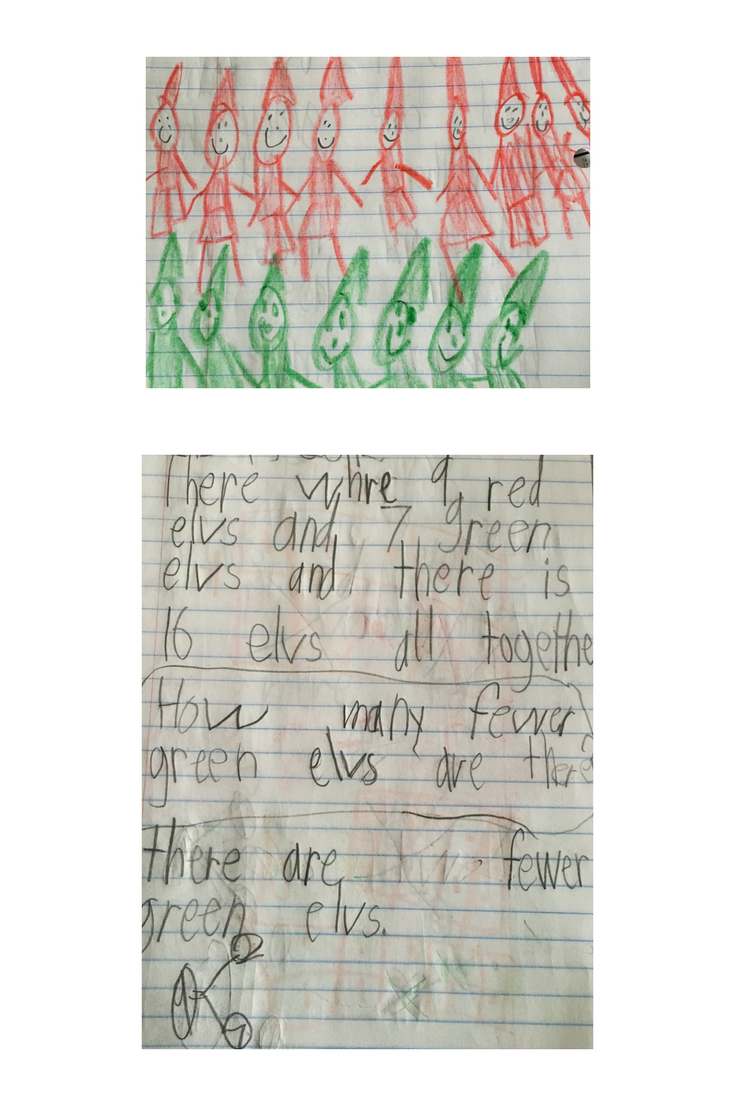 There whre 9 red
elvs and 7 green
elvs and there is
16 elvs all togethe
How many fewer
green elvs are there
there are fewer
green elvs.
2
9
7